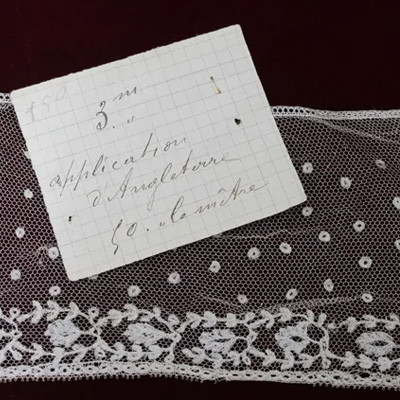 150
3 m "
application
d'Angleterre
50 . " le mètre